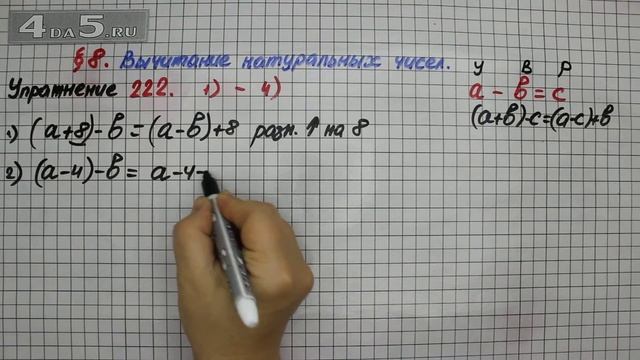 4DA5.RU
§8. Вычитание натуральных чисел.
Упражнение 222. 1) - 4)
У В Р
a - b = c
(a+b)-c=(a-c)+b
1) (a+8)-b=(a-b)+8 разн. ↑ на 8
2) (a-4)-b= a-4-